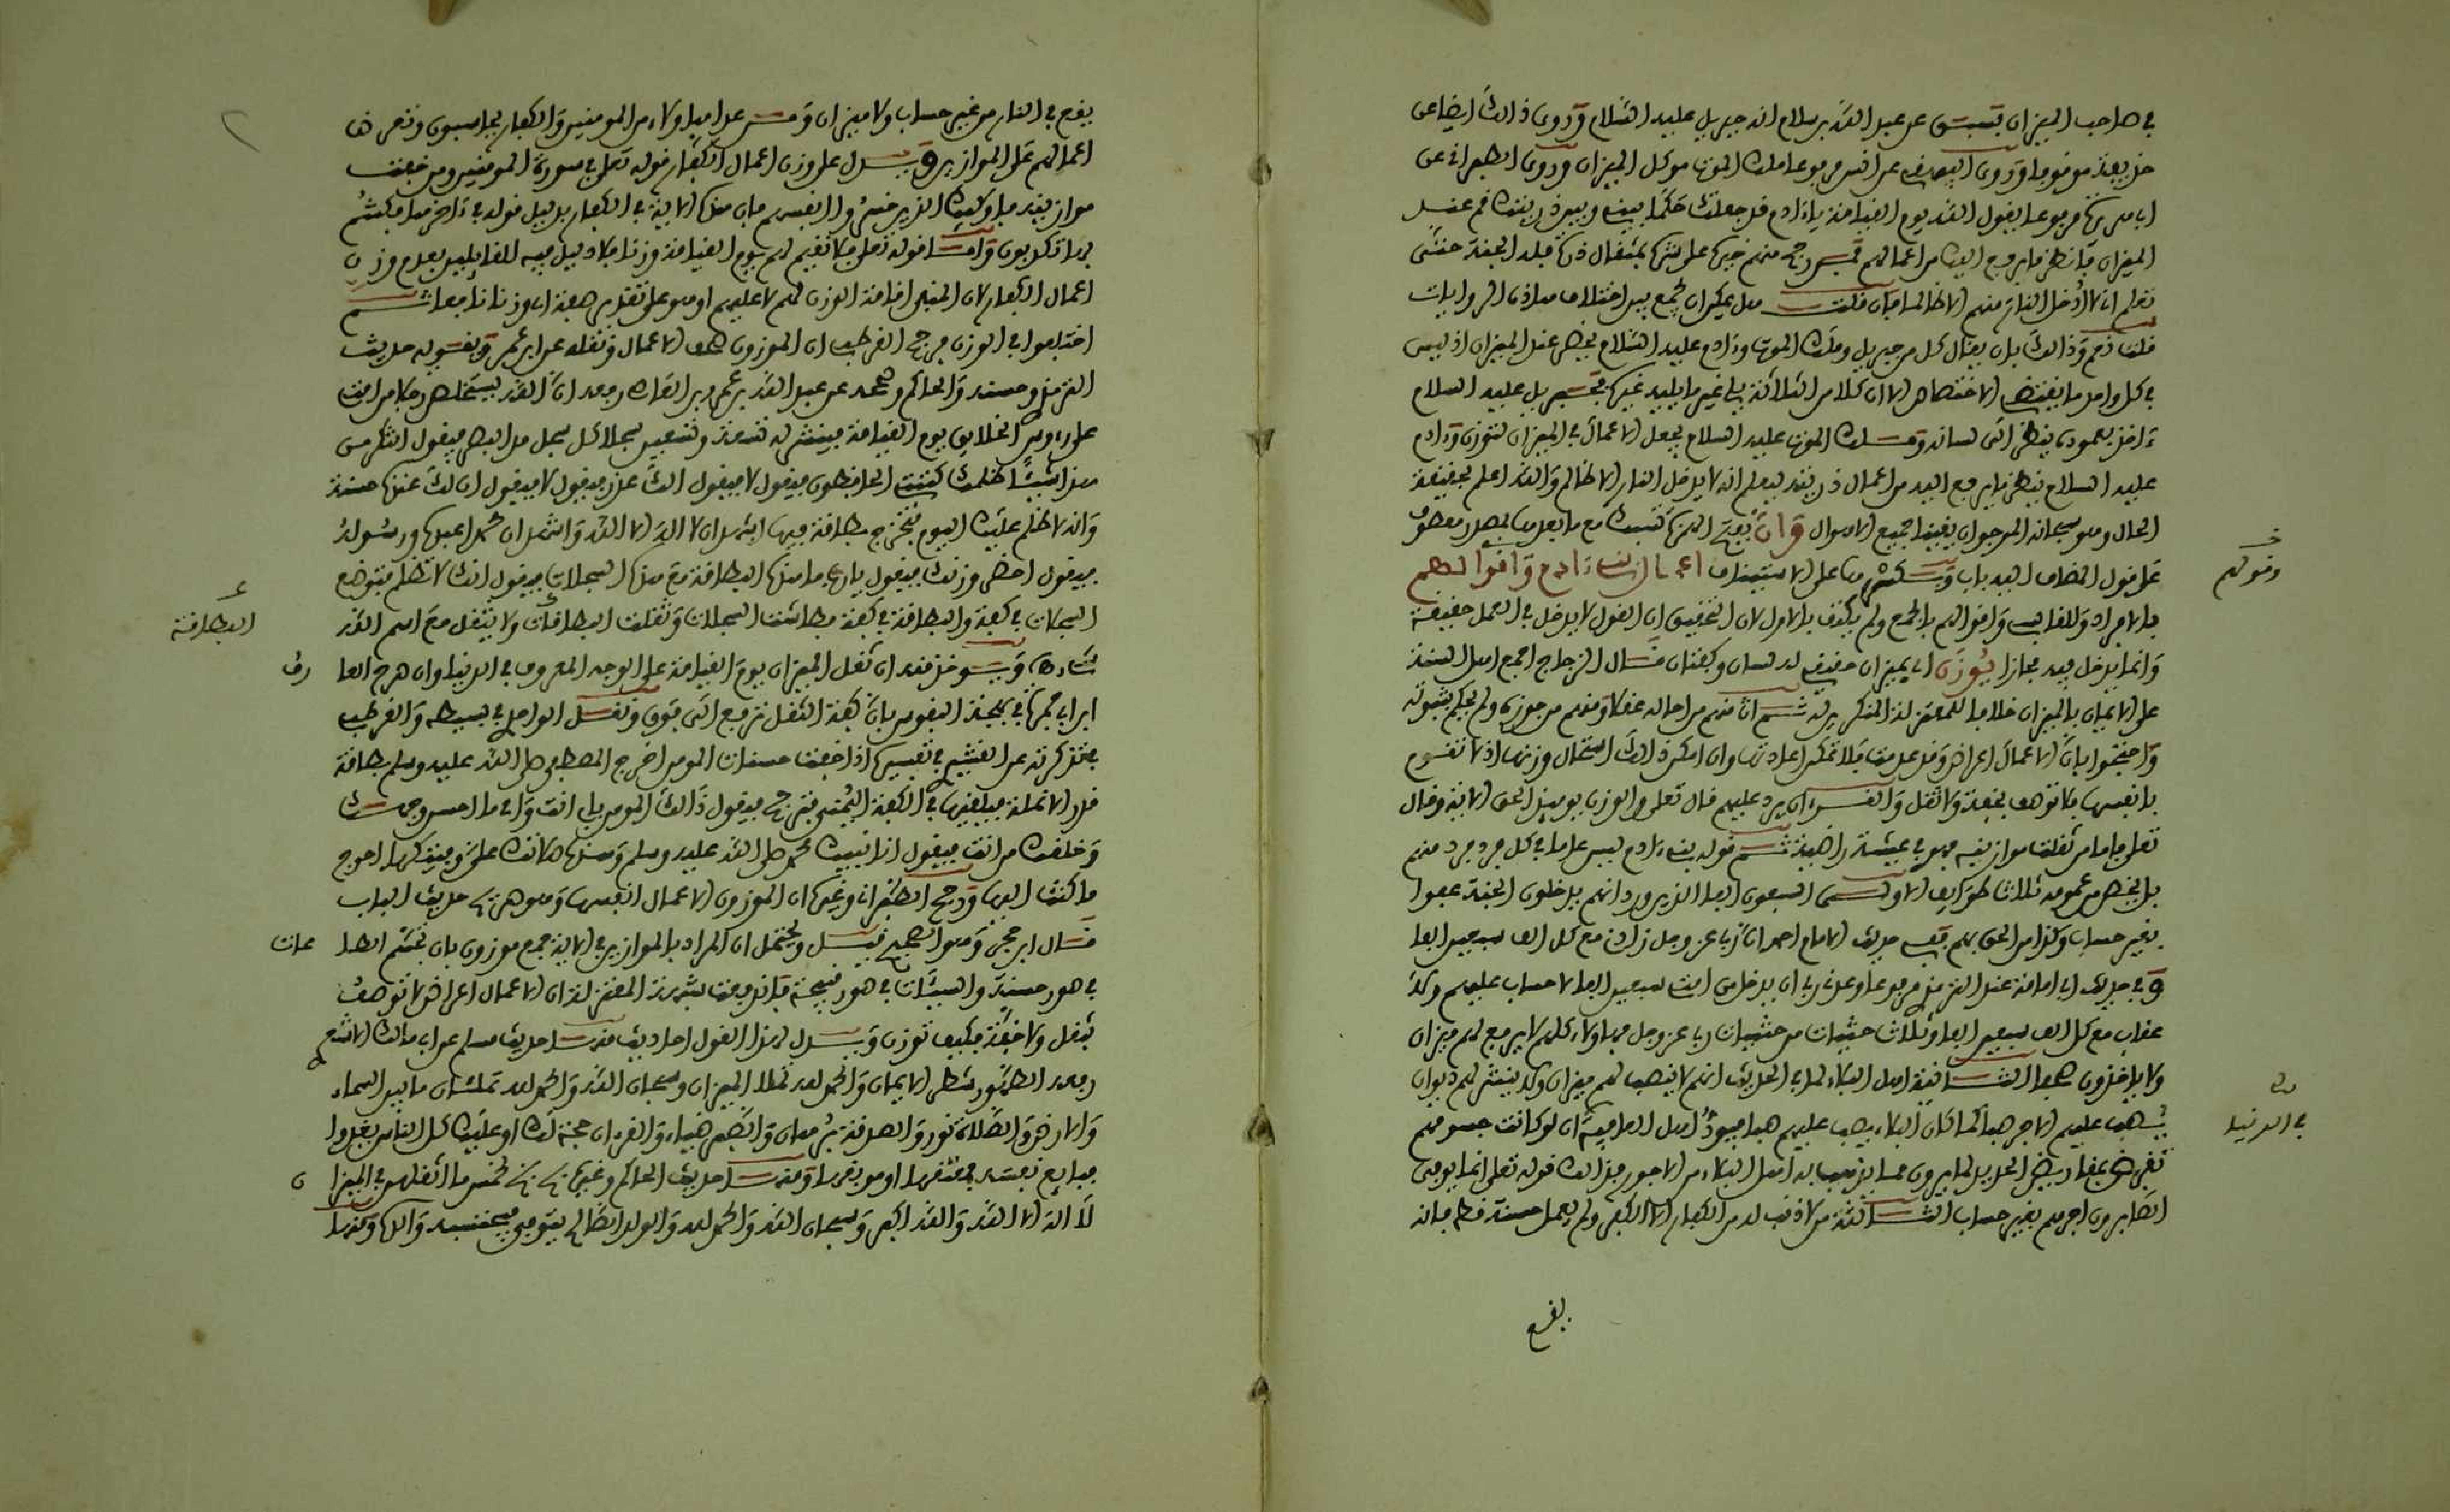 في صاحب الميزان فسبق عن عبد الله بن سلام انه جبريل عليه السلام وروي ذالك ايضا عن
حذيفة موقوفا وروي البيهقي عن انس مرفوعا ملك الموت موكل بالميزان وروي الطبراني عن
ابي هريرة مرفوعا يقول الله يوم القيامة يا ءادم قد جعلتك حكما بيني وبين ذريتك قم عند
الميزان فانظر ما يرفع اليك من اعمالهم فمن رجح منهم خيره على شره بمثقال ذرة فله الجنة حتى
تعلم اني لا ادخل النار منهم الا ظالما فان قلت هل يمكن ان يجمع بين اختلاف هاذه الروايات
قلت نعم وذالك بان يقال كل من جبريل وملك الموت وءادم عليه السلام يحضر عند الميزان اذ ليس
في كل واحد ما يقتضي الاختصاص الا ان كلا من الثلاثة يلي غير ما يليه غيره فجبريل عليه السلام
ءاخذ بعموده ينظر الى لسانه وملك الموت عليه السلام يجعل الاعمال في الميزان لتوزن وءادم
عليه السلام ينظر ما يرفع اليه من اعمال ذريته ليعلم انه لا يدخل النار الا ظالم والله اعلم بحقيقة
الحال وهو سبحانه المرجو ان يقينا جميع الاهوال وان بفتح الهمزة مع ما بعدها بمصدر معطوف
على قول المضاف اليه باب على الاستيناف اعمال بني ءادم واقوالهم
وقولهم
بالافراد وللقابسي واقوالهم بالجمع ولم يكتف بالاول لان التحقيق ان القول لا يدخل في العمل حقيقة
وانما يدخل فيه مجازا يوزن اي بميزان حقيقي له لسان وكفتان قال الزجاج اجمع اهل السنة
على الايمان بالميزان خلافا للمعتزلة المنكرين له ثم ان منهم من احاله عقلا ومنهم من جوزه ولم يحكم بثبوته
واحتجوا بان الاعمال اعراض وقد عدمت فلا تمكن اعادتها وان امكن ذالك استحال وزنها اذ لا تقوم
بانفسها فلا توصف بخفة ولا ثقل والقرءان يرد عليهم قال تعلى والوزن يوميذ الحق الاية وقال
تعلى فاما من ثقلت موازينه فهو في عيشة راضية ثم قوله بني ءادم ليس عاما في كل فرد فرد منهم
بل يخص من عمومه ثلاث طوايف الاولى السبعون الفا الذين ورد انهم يدخلون الجنة عفوا
بغير حساب وكذا من الحق بهم ففي حديث الامام احمد ان ربنا عز وجل زاده مع كل الف سبعين الفا
وفي حديث ابي امامة عند الترمذي مرفوعا وعدني ربي ان يدخل من امتي سبعين الفا لا حساب عليهم ولا
عذاب مع كل الف سبعين الفا وثلاث حثيات من حثيات ربنا عز وجل فهاؤلاء كلهم لا يرفع لهم ميزان
ولا ياخذون صحفا الثانية اهل البلاء لما في الحديث انهم لا ينصب لهم ميزان ولا ينشر لهم ديوان
يصب عليهم الاجر صبا كما كان البلاء يصب عليهم صبا فيود اهل العافية ان لو كانت جسومهم
في الدنيا
تقرض بمقاريض الحديد لما يرون مما ذهب به اهل البلاء من الاجور فذالك قوله تعلى انما يوفى
الصابرون اجرهم بغير حساب الثالثة من لا ذنب له من الكفار الا الكفر ولم يعمل حسنة قط فانه
يقع
يقع في النار من غير حساب ولا ميزان ومن عدا هاؤلاء من المومنين والكفار يحاسبون وتعرض
اعمالهم على الموازين ويدل على وزن اعمال الكفار قوله تعلى في سورة المومنين ومن خفت
موازينه فاوليك الذين خسروا انفسهم فان هذه الاية في الكفار بدليل قوله في ءاخرها فكنتم
بها تكذبون واما قوله تعلى فلا نقيم لهم يوم القيامة وزنا فلا دليل فيه للقايلين بعدم وزن
اعمال الكفار لان المنفي اقامة الوزن لهم لا عليهم او هو على تقدير صفة اي وزنا نافعا ثم
اختلفوا في الوزن فرجح القرطبي ان الموزون صحف الاعمال ونقله عن ابن عمر ويقويه حديث
الترمذي وحسنه والحاكم وصححه عن عبد الله بن عمرو بن العاص رفعه ان الله يستخلص رجلا من امتي
على رءوس الخلايق يوم القيامة فينشر له تسعة وتسعين سجلا كل سجل مد البصر فيقول اتنكر من
هذا شيئا اظلمك كتبتي الحافظون فيقول لا فيقول الك عذر فيقول لا فيقول ان لك عندنا حسنة
وانه لا ظلم عليك اليوم فتخرج بطاقة فيها اشهد ان لا اله الا الله واشهد ان محمدا عبده ورسوله
فيقول احضر وزنك فيقول يا رب ما هذه البطاقة مع هذه السجلات فيقول انك لا تظلم فتوضع
السجلات في كفة والبطاقة في كفة فطاشت السجلات وثقلت البطاقات ولا يثقل مع اسم الله
البطاقة
شيء ويوخذ منه ان ثقل الميزان يوم القيامة على الوجه المعروف في الدنيا وان صرح العا
رف
ابن ابي جمرة في بهجة النفوس بان كفة الثقل ترتفع الى فوق ونقل الواحدي في بسيطه والقرطبي
في تذكرته عن القشيري في تفسيره اذا خفت حسنات المومن اخرج المصطفى صلى الله عليه وسلم بطاقة
قدر الانملة فيلقيها في الكفة اليمنى فترجح فيقول ذالك المومن بابي انت وامي ما احسن وجهك
وخلقك من انت فيقول انا نبيك محمد صلى الله عليه وسلم وهذه صلاتك علي وفيتكها احوج
ما كنت اليها ورجح الطبراني وغيره ان الموزون الاعمال انفسها وهو ظاهر حديث الباب
قال ابن حجر وهو الصحيح قيل ويحتمل ان المراد بالموازين في الاية جمع موزون بان تجسم الطا
عات
في صور حسنة والسيئات في صور قبيحة فاندفعت شبهة المعتزلة ان الاعمال اعراض لا توصف
بثقل ولا خفة فكيف توزن ويدل لهذا القول احاديث منها حديث مسلم عن ابي مالك الاشعري
رفعه الطهور شطر الايمان والحمد لله تملا الميزان وسبحان الله والحمد لله تملئان ما بين السماء
والارض والصلاة نور والصدقة برهان والصبر ضياء والقرءان حجة لك او عليك كل الناس يغدوا
فبايع نفسه فمعتقها او موبقها ومنها حديث الحاكم وغيره بخ بخ لخمس ما اثقلهن في الميزا
ن
لا اله الا الله والله اكبر وسبحان الله والحمد لله والولد الصالح يتوفى فيحتسبه والداه ومنها